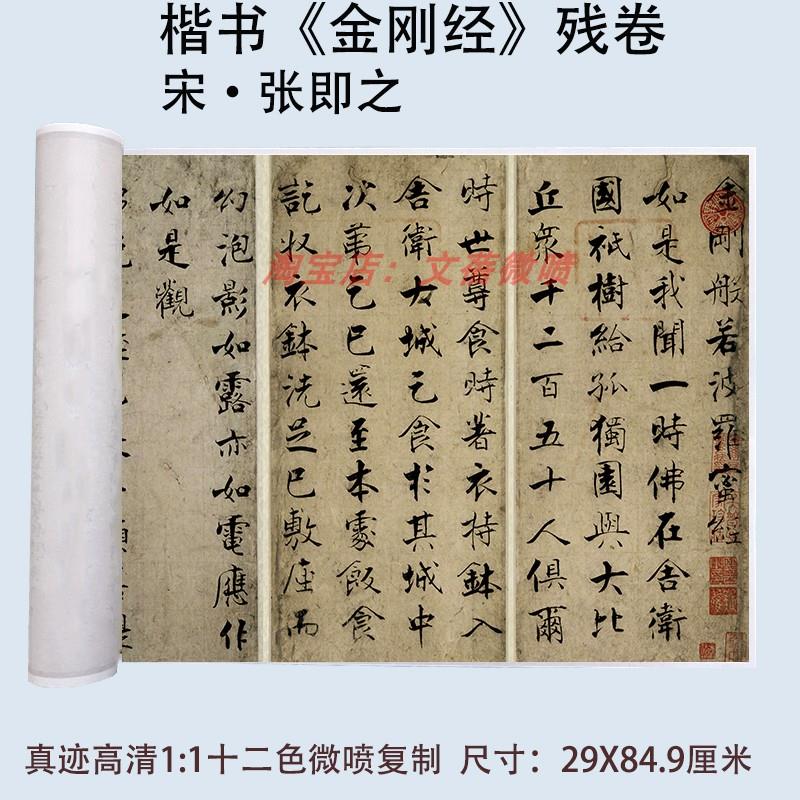 楷书《金刚经》残卷
宋·张即之
金剛般若波羅蜜經
如是我聞一時佛在舍衛
國祇樹給孤獨園與大比
丘衆千二百五十人俱爾
時世尊食時著衣持鉢入
舍衛大城乞食於其城中
次第乞已還至本處飯食
訖收衣鉢洗足已敷座而
幻泡影如露亦如電應作
如是觀
淘宝店：文荟微喷
真迹高清1:1十二色微喷复制 尺寸：29X84.9厘米